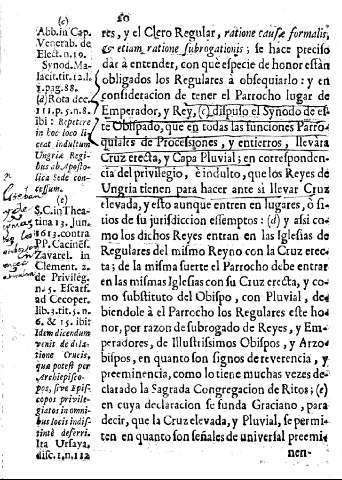 10
(c)
Abb. in Cap.
Venerab. de
Elect. n. 19.
Synod. Ma-
lacit. tit. 12. l.
1. pag. 88.
(d) Rota dec.
111. p. 5. n. 8.
ibi: Repetere
in hoc loco li-
cerat indultum
Ungriæ Regi-
bus ib. Aposto-
lica Sede con-
cessum.
(e)
S. C. in Thea-
tina 13. Jun.
1613. contra
PP. Cacinès.
Zavarel. in
Clement. 2.
de Privileg.
n. 5. Escarf.
ad Cecoper.
lib. 3. tit. 5. n.
6. & 15. ibi:
Idem dicendum
venit de dila-
tione Crucis,
qua potest per
Archiepisco-
pos, sive Epis-
copos privile-
giatos in omni-
bus locis indis-
tinctè deferri.
Ita Ursaya.
disc. 1. n. 112
res, y el Clero Regular, ratione causæ formalis,
& etiam ratione subrogationis; se hace preciso
dár à entender, con què especie de honor estàn
obligados los Regulares à obsequiarlo: y en
consideracion de tener el Parrocho lugar de
Emperador, y Rey, (c) dispuso el Synodo de es-
te Obispado, que en todas las funciones Parro-
quiales de Processiones, y entierros, llevara
Cruz erecta, y Capa Pluvial; en correspondencia
del privilegio, è indulto, que los Reyes de
Ungria tienen para hacer ante si llevar Cruz
elevada, y esto aunque entren en lugares, ò si-
tios de su jurisdiccion essemptos: (d) y asi co-
mo los dichos Reyes entran en las Iglesias de
Regulares del mismo Reyno con la Cruz erec-
ta; de la misma suerte el Parrocho debe entrar
en las mismas Iglesias con su Cruz erecta, y co-
mo substituto del Obispo, con Pluvial, de-
biendole à el Parrocho los Regulares este ho-
nor, por razon de subrogado de Reyes, y Em-
peradores, de Illustrisimos Obispos, y Arzo-
bispos, en quanto son signos de reverencia, y
preeminencia, como lo tiene muchas veces de-
clarado la Sagrada Congregacion de Ritos; (e)
en cuya declaracion se funda Graciano, para
decir, que la Cruz elevada, y Pluvial, se permi-
ten en quanto son señales de universal preemi-
nen-